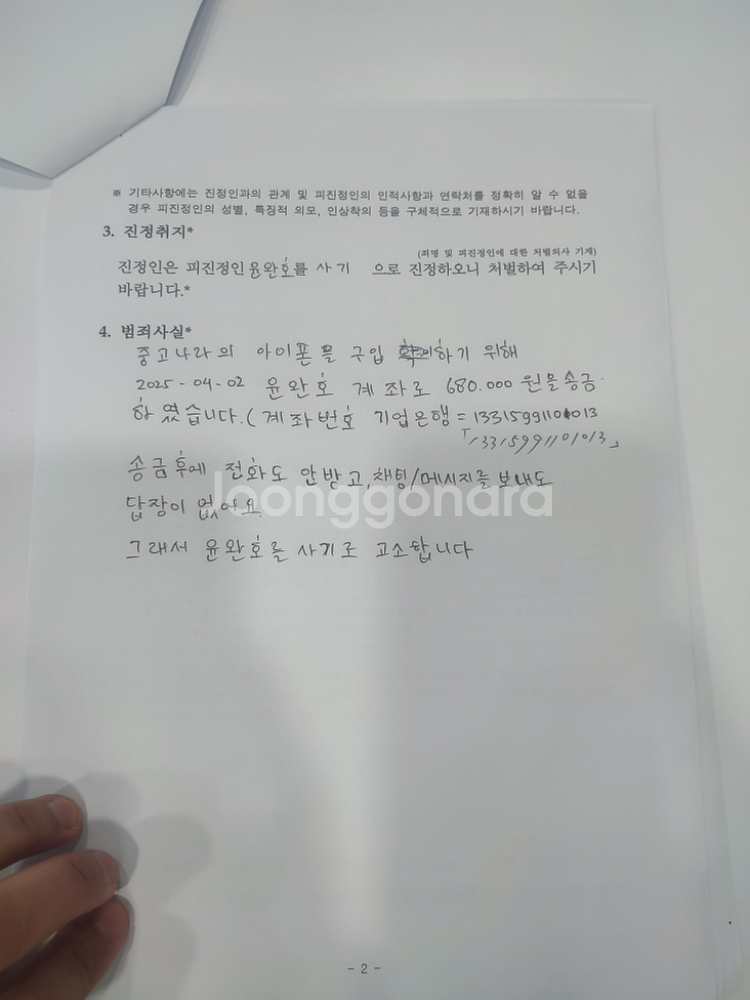 ※ 기타사항에는 진정인과의 관계 및 피진정인의 인적사항과 연락처를 정확히 알 수 없을
경우 피진정인의 성별, 특징적 외모, 인상착의 등을 구체적으로 기재하시기 바랍니다.
3. 진정취지*
(죄명 및 피진정인에 대한 처벌의사 기재)
진정인은 피진정인 윤완호를 사기 으로 진정하오니 처벌하여 주시기
바랍니다.*
4. 범죄사실*
중고나라의 아이폰을 구입 하기 위해
2025-04-02 윤완호 계좌로 680.000 원을송금
하였습니다.(계좌번호 기업은행 =
「13315991101013」
송금후에 전화도 안받고,채팅/메시지를 보내도
답장이 없어요
그래서 윤완호를 사기로 고소합니다
joonggonara
- 2 -